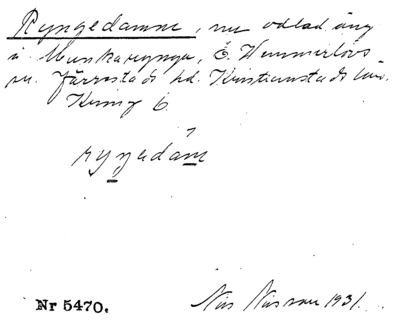 Ryngedamm, nu odlad äng
i Munkaryngen, Ö. Hemmerlövs
sn. Järrestads hd. Kristianstads län.
Kring 6
ryngedam
Nr 5470.
Nils Nilsson 1931.